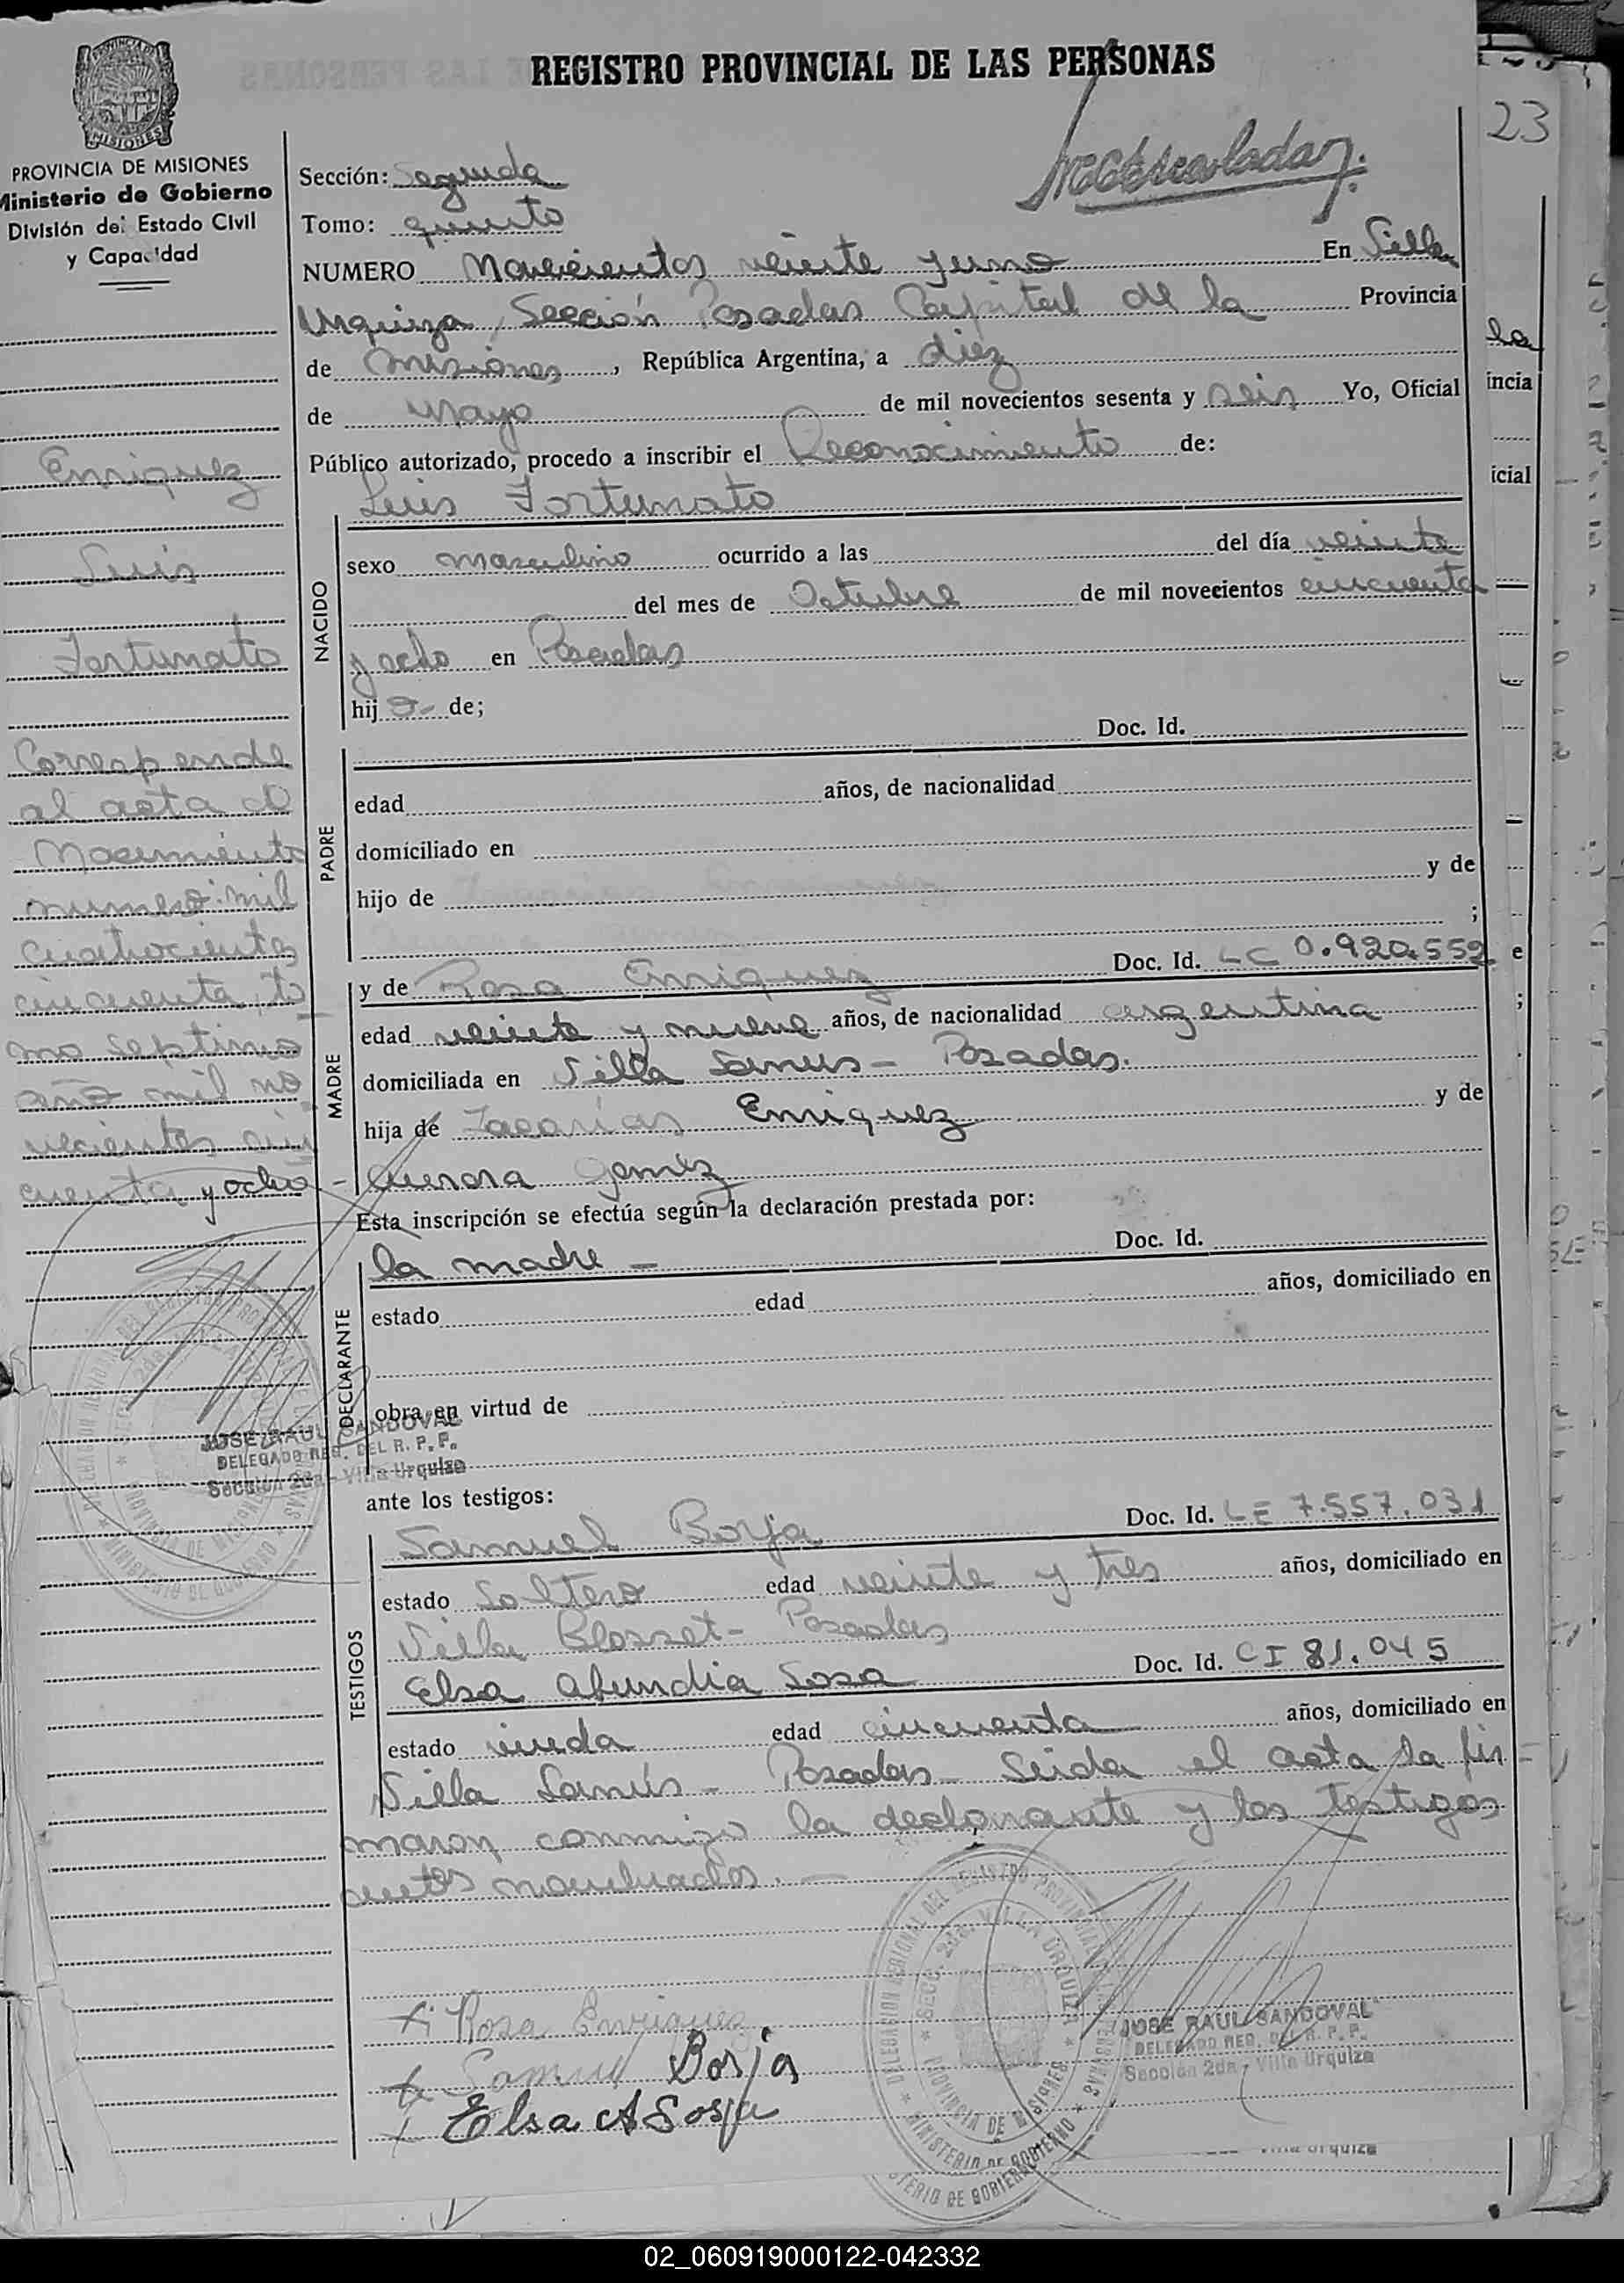 REGISTRO PROVINCIAL DE LAS PERSONAS
PROVINCIA DE MISIONES
Ministerio de Gobierno
División del Estado Civil
y Capacidad
23
Sección: Segunda
Tomo: quinto
NUMERO Novecientos veinte y uno En Villa
Urquiza, Sección Posadas Capital de la Provincia
de Misiones, República Argentina, a diez
de Mayo de mil novecientos sesenta y seis Yo, Oficial
Público autorizado, procedo a inscribir el Reconocimiento de:
Luis Fortunato
NACIDO
sexo masculino ocurrido a las del día veinte
del mes de Octubre de mil novecientos cincuenta
y ocho en Posadas
hijo- de;
PADRE
Doc. Id.
edad años, de nacionalidad
domiciliado en
hijo de y de
;
MADRE
y de Rosa Enriquez Doc. Id. LC 0.920.552
edad veinte y nueve años, de nacionalidad argentina
domiciliada en Villa Lanus - Posadas.
hija de Zacarías Enriquez y de
- Aurora Gomez
Esta inscripción se efectúa según la declaración prestada por:
DECLARANTE
la madre - Doc. Id.
estado edad años, domiciliado en
obra en virtud de
ante los testigos:
TESTIGOS
Samuel Borja Doc. Id. LE 7.557.031
estado Soltero edad veinte y tres años, domiciliado en
Villa Blosset - Posadas
Elsa Abundia Sosa Doc. Id. CI 81.045
estado viuda edad cincuenta años, domiciliado en
Villa Lanús - Posadas - Leida el acta la fir=
maron conmigo la declarante y los testigos
antes nombrados. -
Enriquez
Luis
Fortunato
Corresponde
al acta d
Nacimiento
numero mil
cuatrocientos
cincuenta, to
mo septimo
año mil no
vecientos cin
cuenta y ocho
JOSE RAUL SANDOVAL
DELEGADO REG. DEL R. P. P.
Sección 2da - Villa Urquiza
x Rosa Enriquez
x Samuel Borja
x Elsa A Sosa
DELEGACION REGIONAL DEL REGISTRO PROVINCIAL DE LAS PERSONAS
SECC. 2da. VILLA URQUIZA
PROVINCIA DE MISIONES
MINISTERIO DE GOBIERNO
JOSE RAUL SANDOVAL
DELEGADO REG. DEL R. P. P.
Sección 2da - Villa Urquiza
02_060919000122-042332